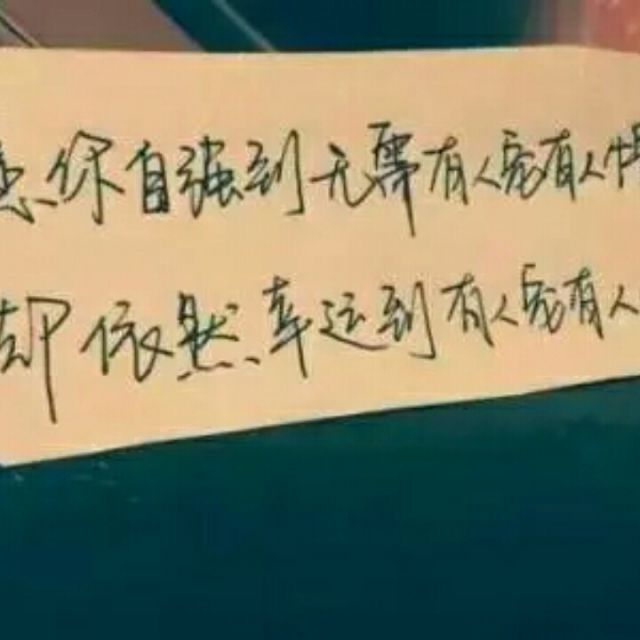 你自强到无需有人宠有人
却依然幸运到有人宠有人